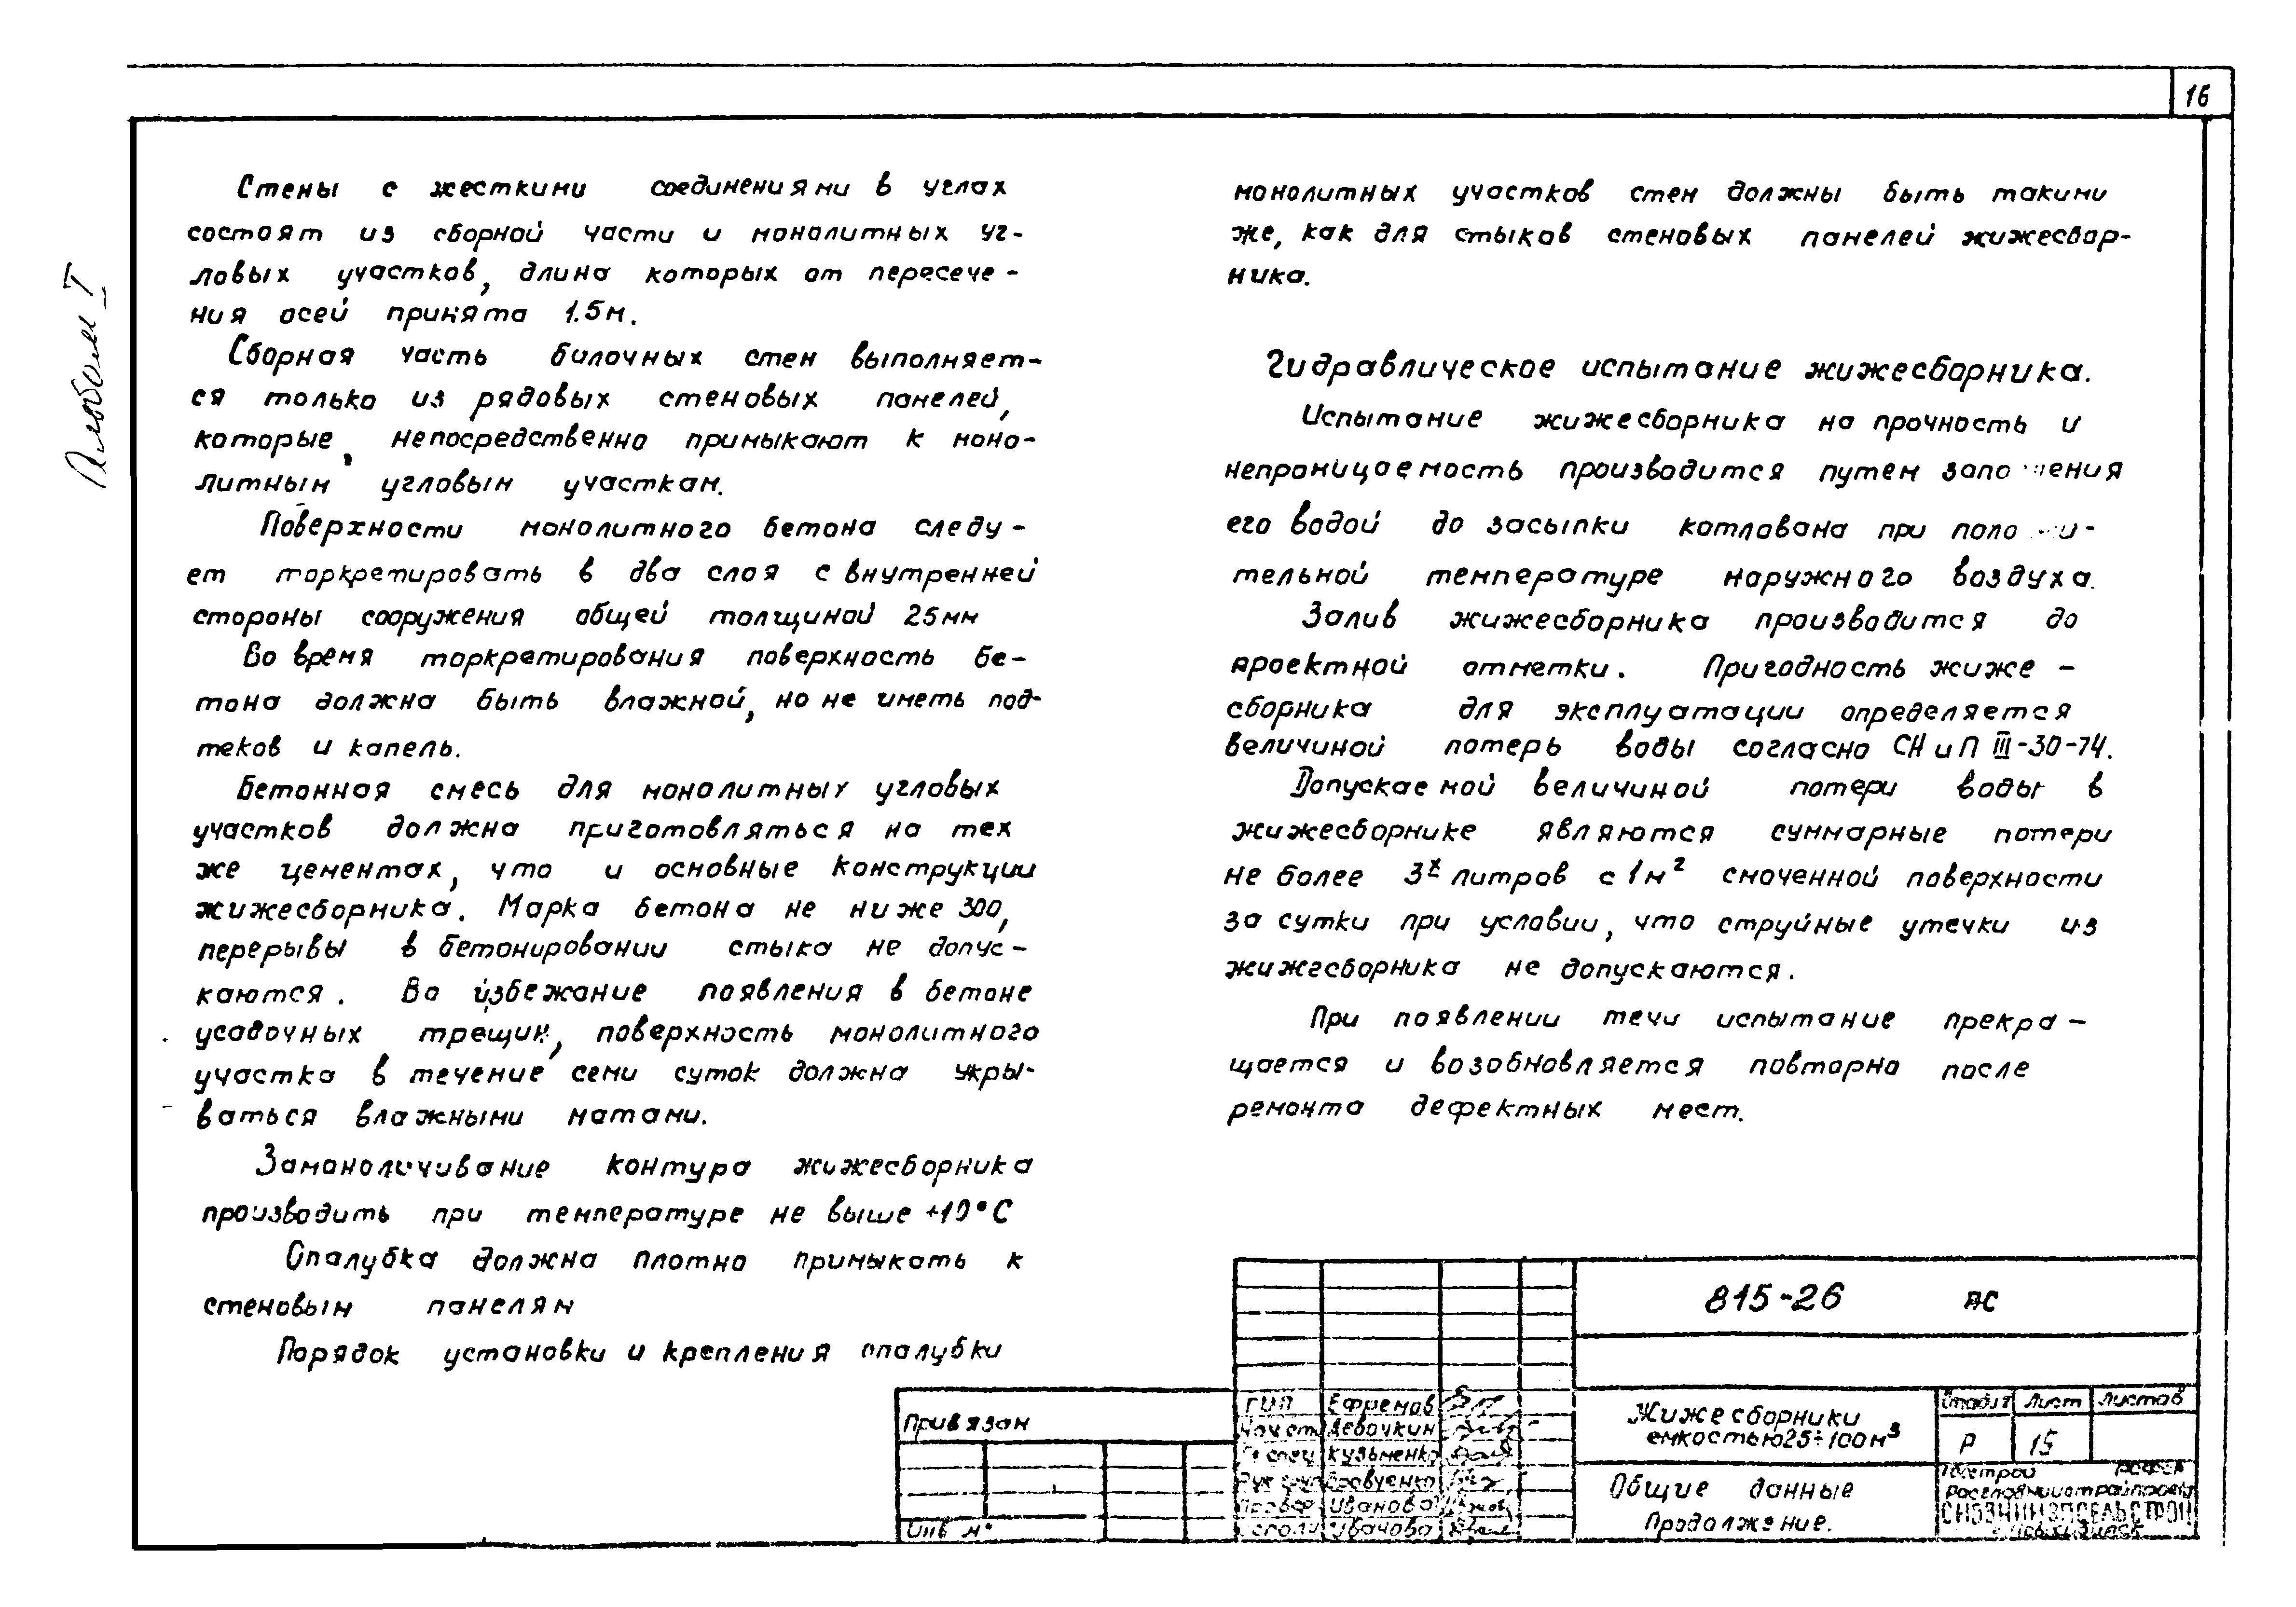 16
Альбом I
Стены с жесткими соединениями в углах
состоят из сборной части и монолитных уг-
ловых участков, длина которых от пересече-
ния осей принята 1.5м.
Сборная часть балочных стен выполняет-
ся только из рядовых стеновых панелей,
которые, непосредственно примыкают к моно-
литным угловым участкам.
Поверхности монолитного бетона следу-
ет торкретировать в два слоя с внутренней
стороны сооружения общей толщиной 25мм
Во время торкретирования поверхность бе-
тона должна быть влажной, но не иметь под-
теков и капель.
Бетонная смесь для монолитных угловых
участков должна приготовляться на тех
же цементах, что и основные конструкции
жижесборника. Марка бетона не ниже 300,
перерывы в бетонировании стыка не допус-
каются. Во избежание появления в бетоне
усадочных трещин, поверхность монолитного
участка в течение семи суток должна укры-
ваться влажными матами.
Замоноличивание контура жижесборника
производить при температуре не выше +10°С
Опалубка должна плотно примыкать к
стеновым панелям
Порядок установки и крепления опалубки
монолитных участков стен должны быть такими
же, как для стыков стеновых панелей жижесбор-
ника.
Гидравлическое испытание жижесборника.
Испытание жижесборника на прочность и
непроницаемость производится путем заполнения
его водой до засыпки котлована при положи-
тельной температуре наружного воздуха.
Залив жижесборника производится до
проектной отметки. Пригодность жиже-
сборника для эксплуатации определяется
величиной потерь воды согласно СНиП III-30-74.
Допускаемой величиной потери воды в
жижесборнике являются суммарные потери
не более 3х литров с 1м² смоченной поверхности
за сутки при условии, что струйные утечки из
жижесборника не допускаются.
При появлении течи испытание прекра-
щается и возобновляется повторно после
ремонта дефектных мест.
815-26 АС
Привязан
Инв №
ГИП Ефремов
Нач от Девочкин
Гл спец Кузьменко
Провер Иванова
Исполн Иванова
Жижесборники
емкостью 25÷100м³
Стадия Лист Листов
Р 15
Общие данные
Продолжение.
Госстрой РСФСР